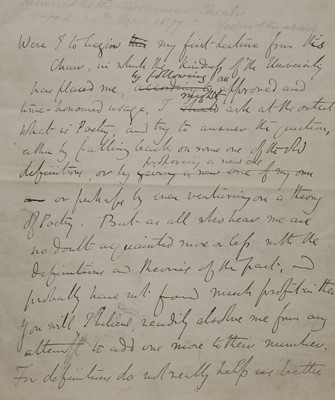 Were I to begin this my first lecture from this
Chair, in which the kindness of the University
by following an
has placed me, according to approved and
might
time-honoured usage, I should ask at the outset
What is Poetry, and try to answer the question,
either by falling back on some one of the old
proposing a new one
definitions, or by giving a new one of my own
or perhaps by even venturing on a theory
of Poetry. But as all who hear me are
no doubt acquainted more or less with the
definitions and theories of the past, and
probably have not found much profit in them
You will I believe, readily absolve me from any
attempt to add one more to their number.
For definitions do not really help us better